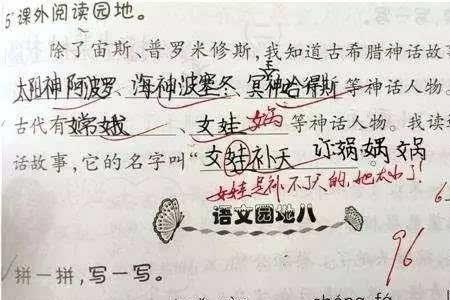 5 课外阅读园地。
除了宙斯、普罗米修斯,我知道古希腊神话故
太阳神阿波罗、海神波塞冬、冥神哈得斯等神话人物。
古代有嫦娥、女娃 娲 等神话人物。我读
话故事,它的名字叫“女娃补天 订娲 娲 娲
女娃是补不了天的,她太小了!
语文园地八
96
拼一拼,写一写。